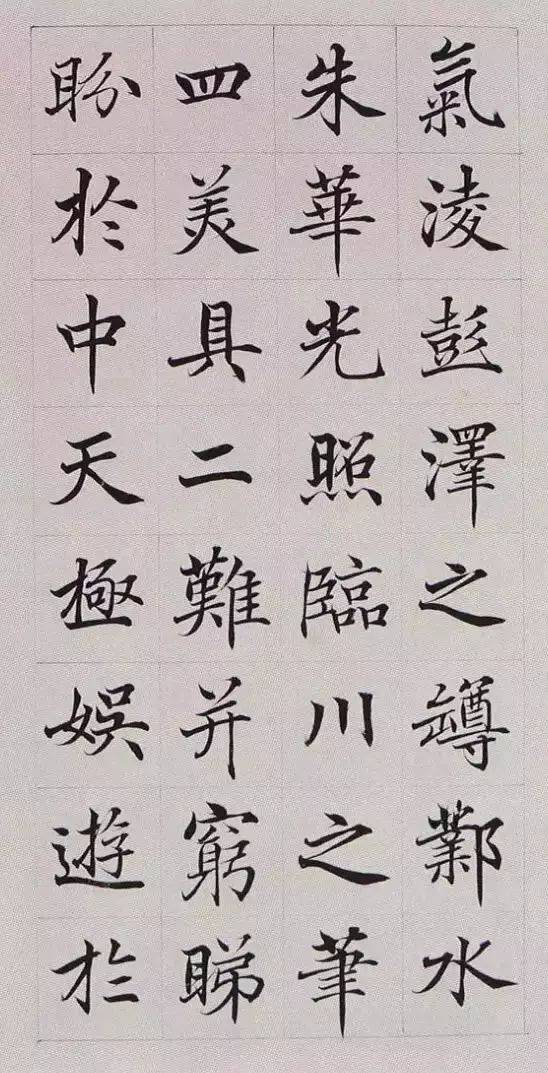 氣淩彭澤之罇鄴水
朱華光照臨川之筆
四美具二難并窮睇
眄於中天極娛遊於